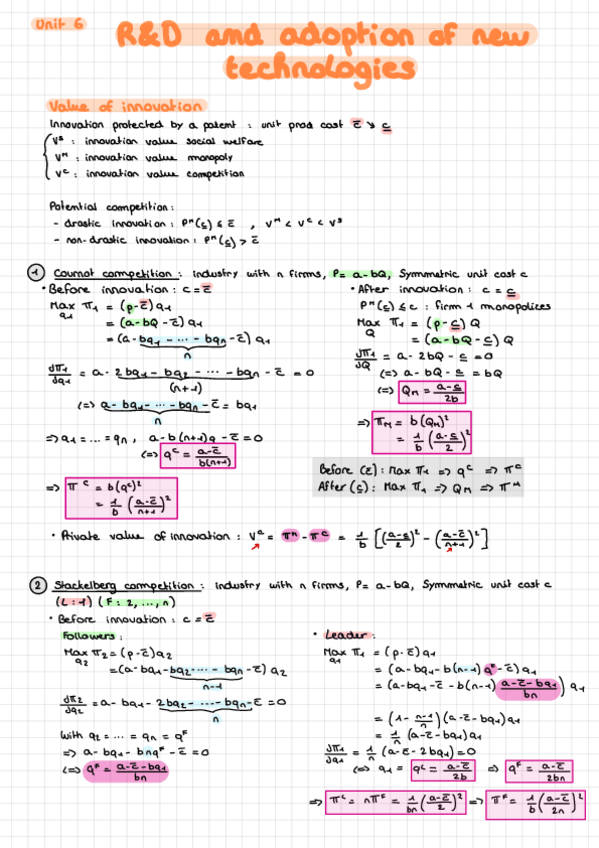 Unit 6
R&D and adoption of new
technologies
Value of innovation
Innovation protected by a patent : unit prod cost c̄ ↘ c̲
V^S : innovation value social welfare
V^M : innovation value monopoly
V^C : innovation value competition
Potential competition :
- drastic innovation : P^M(c̲) ≤ c̄ , V^M < V^C < V^S
- non-drastic innovation : P^M(c̲) > c̄
1 Cournot competition : industry with n firms, P = a-bQ, Symmetric unit cost c
• Before innovation : c = c̄
Max_{q1} π1 = (p-c̄) q1
= (a-bQ-c̄) q1
= (a-bq1 - ... - bqn - c̄) q1
n
dπ1/dq1 = a - 2bq1 - bq2 - ... - bqn - c̄ = 0
(n+1)
(=) a - bq1 - ... - bqn - c̄ = bq1
n
=> q1 = ... = qn , a - b(n+1)q - c̄ = 0
(=) q^C = (a-c̄)/(b(n+1))
=> π^C = b(q^C)²
= 1/b ((a-c̄)/(n+1))²
• After innovation : c = c̲
P^M(c̲) ≤ c : firm 1 monopolizes
Max_Q π1 = (p-c̲) Q
= (a-bQ-c̲) Q
dπ1/dQ = a - 2bQ - c̲ = 0
(=) a - bQ - c̲ = bQ
(=) Q_M = (a-c̲)/2b
=> π_M = b(Q_M)²
= 1/b ((a-c̲)/2)²
Before (c̄) : Max π1 => q^C => π^C
After (c̲) : Max π1 => Q_M => π^M
• Private value of innovation : V^C = π^M - π^C = 1/b [((a-c̲)/2)² - ((a-c̄)/(n+1))²]
2 Stackelberg competition : industry with n firms, P = a-bQ, Symmetric unit cost c
(L : 1) (F : 2, ..., n)
• Before innovation : c = c̄
Followers :
Max_{q2} π2 = (p-c̄) q2
= (a-bq1 - bq2 - ... - bqn - c̄) q2
n-1
dπ2/dq2 = a - bq1 - 2bq2 - ... - bqn - c̄ = 0
n
With q2 = ... = qn = q^F
=> a - bq1 - bnq^F - c̄ = 0
(=) q^F = (a-c̄-bq1)/bn
• Leader :
Max_{q1} π1 = (p-c̄) q1
= (a-bq1 - b(n-1) q^F - c̄) q1
= (a-bq1 - c̄ - b(n-1) (a-c̄-bq1)/bn) q1
= (1 - (n-1)/n)(a-c̄-bq1) q1
= 1/n (a-c̄-bq1) q1
dπ1/dq1 = 1/n (a-c̄-2bq1) = 0
(=) q1 = q^L = (a-c̄)/2b => q^F = (a-c̄)/2bn
=> π^L = nπ^F = 1/bn ((a-c̄)/2)² => π^F = 1/b ((a-c̄)/2n)²